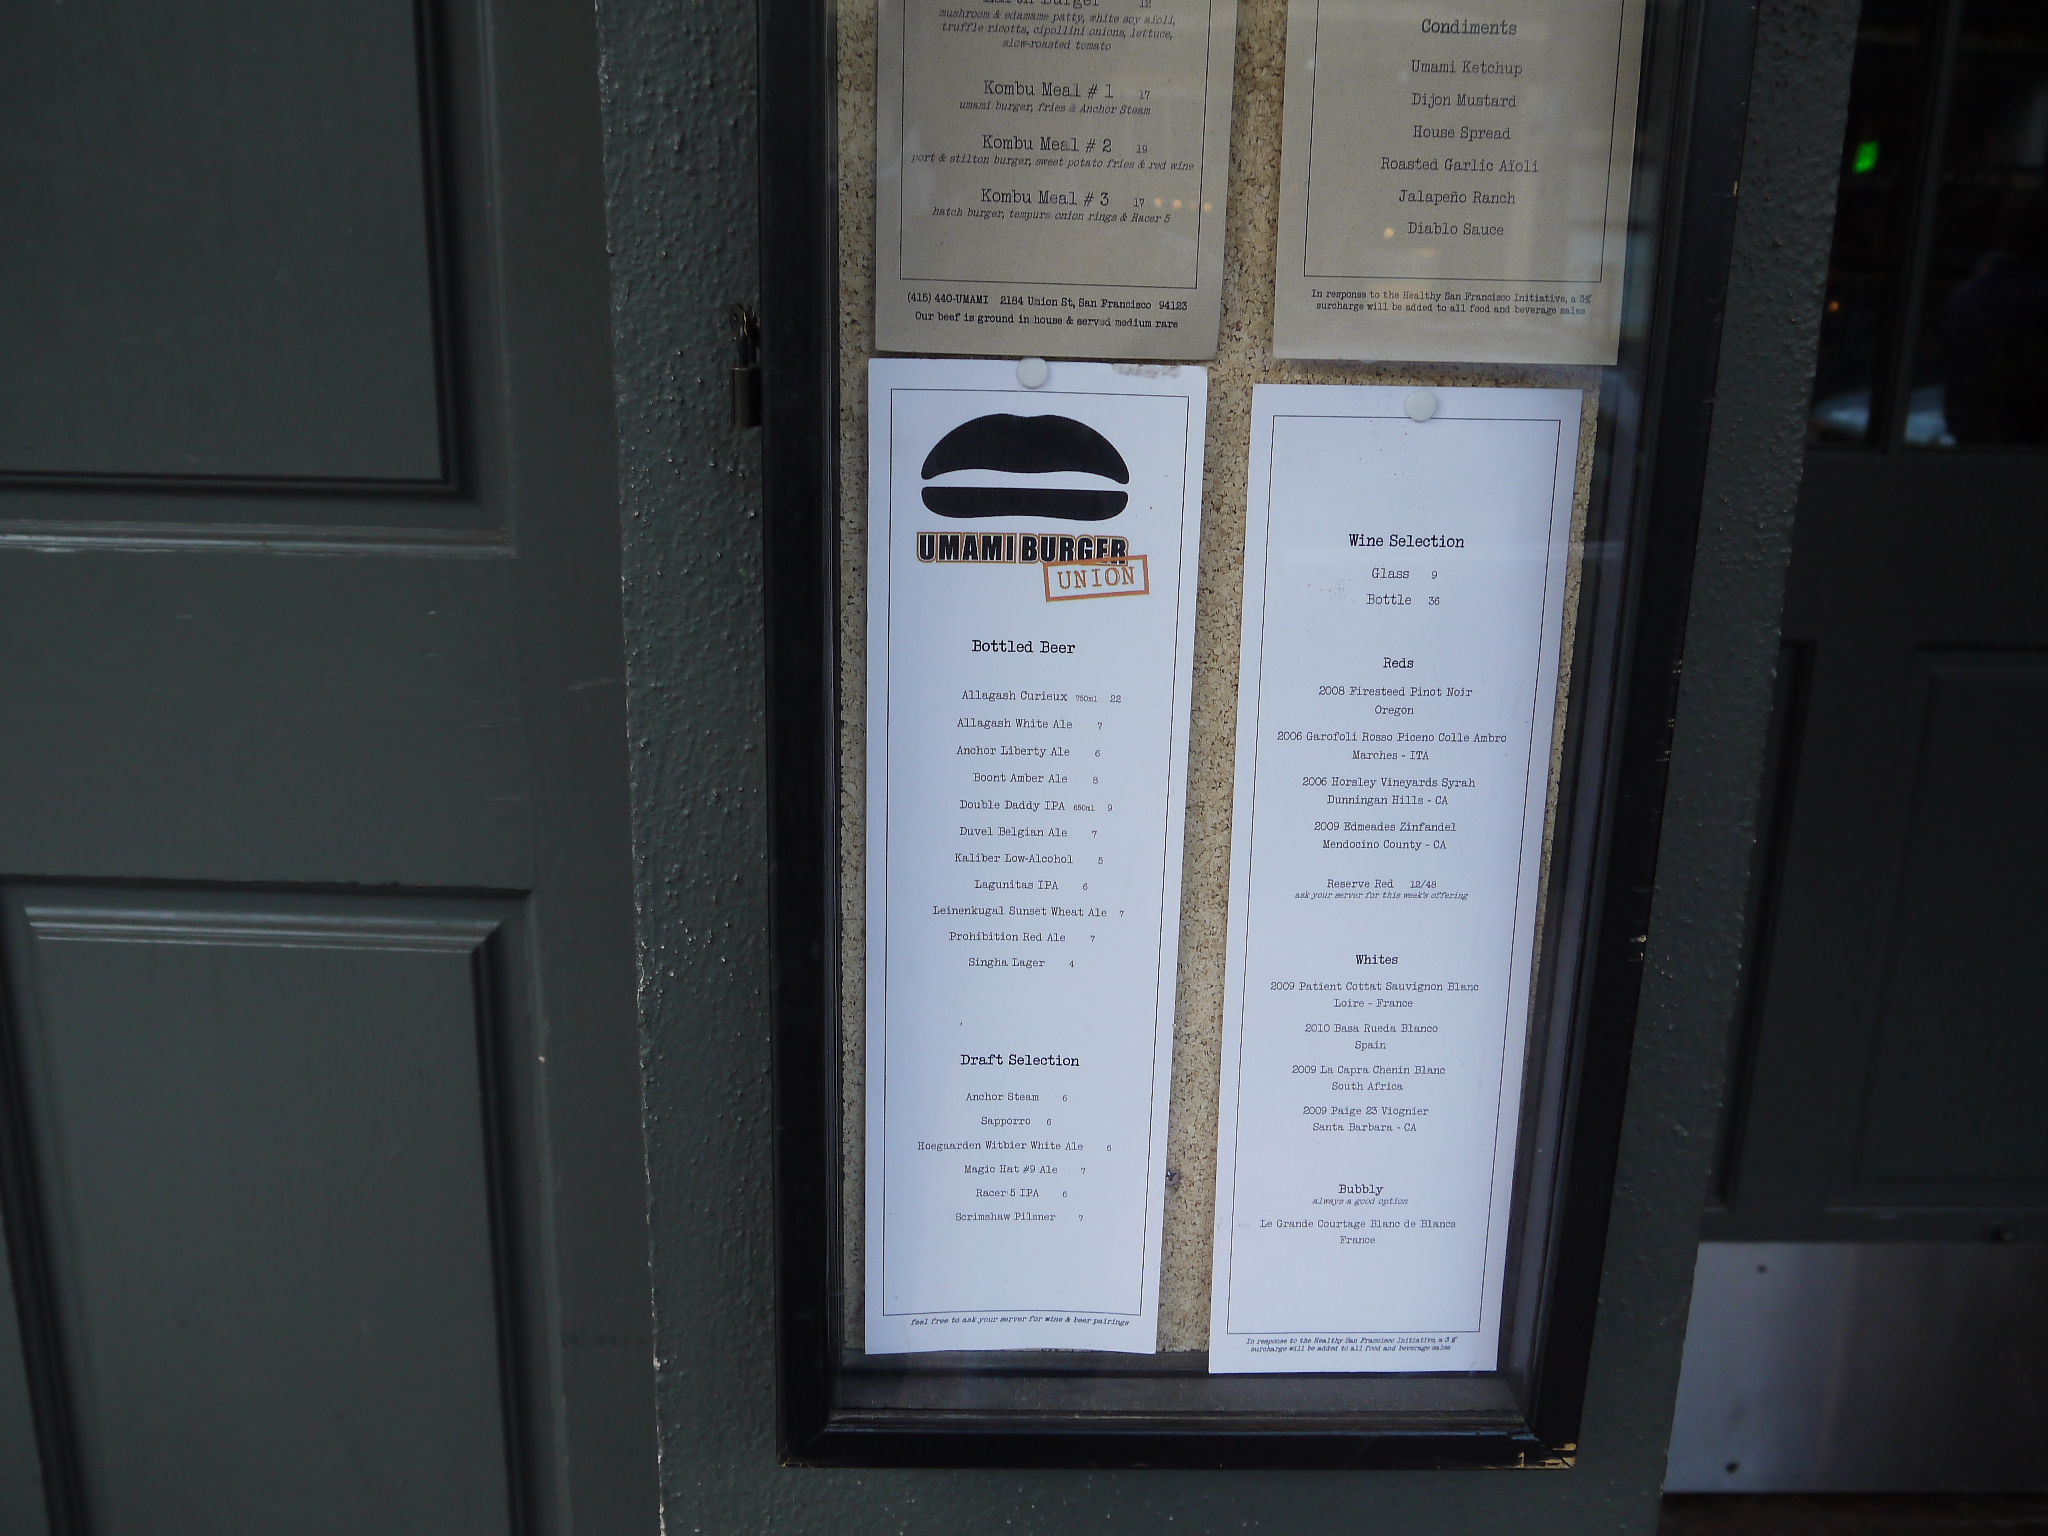 Earth Burger 12
mushroom & edamame patty, white soy aïoli,
truffle ricotta, cipollini onions, lettuce,
slow-roasted tomato
Kombu Meal # 1 17
umami burger, fries & Anchor Steam
Kombu Meal # 2 19
port & stilton burger, sweet potato fries & red wine
Kombu Meal # 3 17
hatch burger, tempura onion rings & Racer 5
(415) 440-UMAMI 2184 Union St, San Francisco 94123
Our beef is ground in house & served medium rare
Condiments
Umami Ketchup
Dijon Mustard
House Spread
Roasted Garlic Aïoli
Jalapeño Ranch
Diablo Sauce
In response to the Healthy San Francisco Initiative, a 3%
surcharge will be added to all food and beverage sales
UMAMI BURGER
UNION
Bottled Beer
Allagash Curieux 750ml 22
Allagash White Ale 7
Anchor Liberty Ale 6
Boont Amber Ale 6
Double Daddy IPA 650ml 9
Duvel Belgian Ale 7
Kaliber Low-Alcohol 5
Lagunitas IPA 6
Leinenkugal Sunset Wheat Ale 7
Prohibition Red Ale 7
Singha Lager 4
Draft Selection
Anchor Steam 6
Sapporro 6
Hoegaarden Witbier White Ale 6
Magic Hat #9 Ale 7
Racer 5 IPA 6
Scrimshaw Pilsner 7
feel free to ask your server for wine & beer pairings
Wine Selection
Glass 9
Bottle 36
Reds
2008 Firesteed Pinot Noir
Oregon
2006 Garofoli Rosso Piceno Colle Ambro
Marches - ITA
2006 Horsley Vineyards Syrah
Dunningan Hills - CA
2009 Edmeades Zinfandel
Mendocino County - CA
Reserve Red 12/48
ask your server for this week's offering
Whites
2009 Patient Cottat Sauvignon Blanc
Loire - France
2010 Basa Rueda Blanco
Spain
2009 La Capra Chenin Blanc
South Africa
2009 Paige 23 Viognier
Santa Barbara - CA
Bubbly
always a good option
Le Grande Courtage Blanc de Blancs
France
In response to the Healthy San Francisco Initiative, a 3 %
surcharge will be added to all food and beverage sales